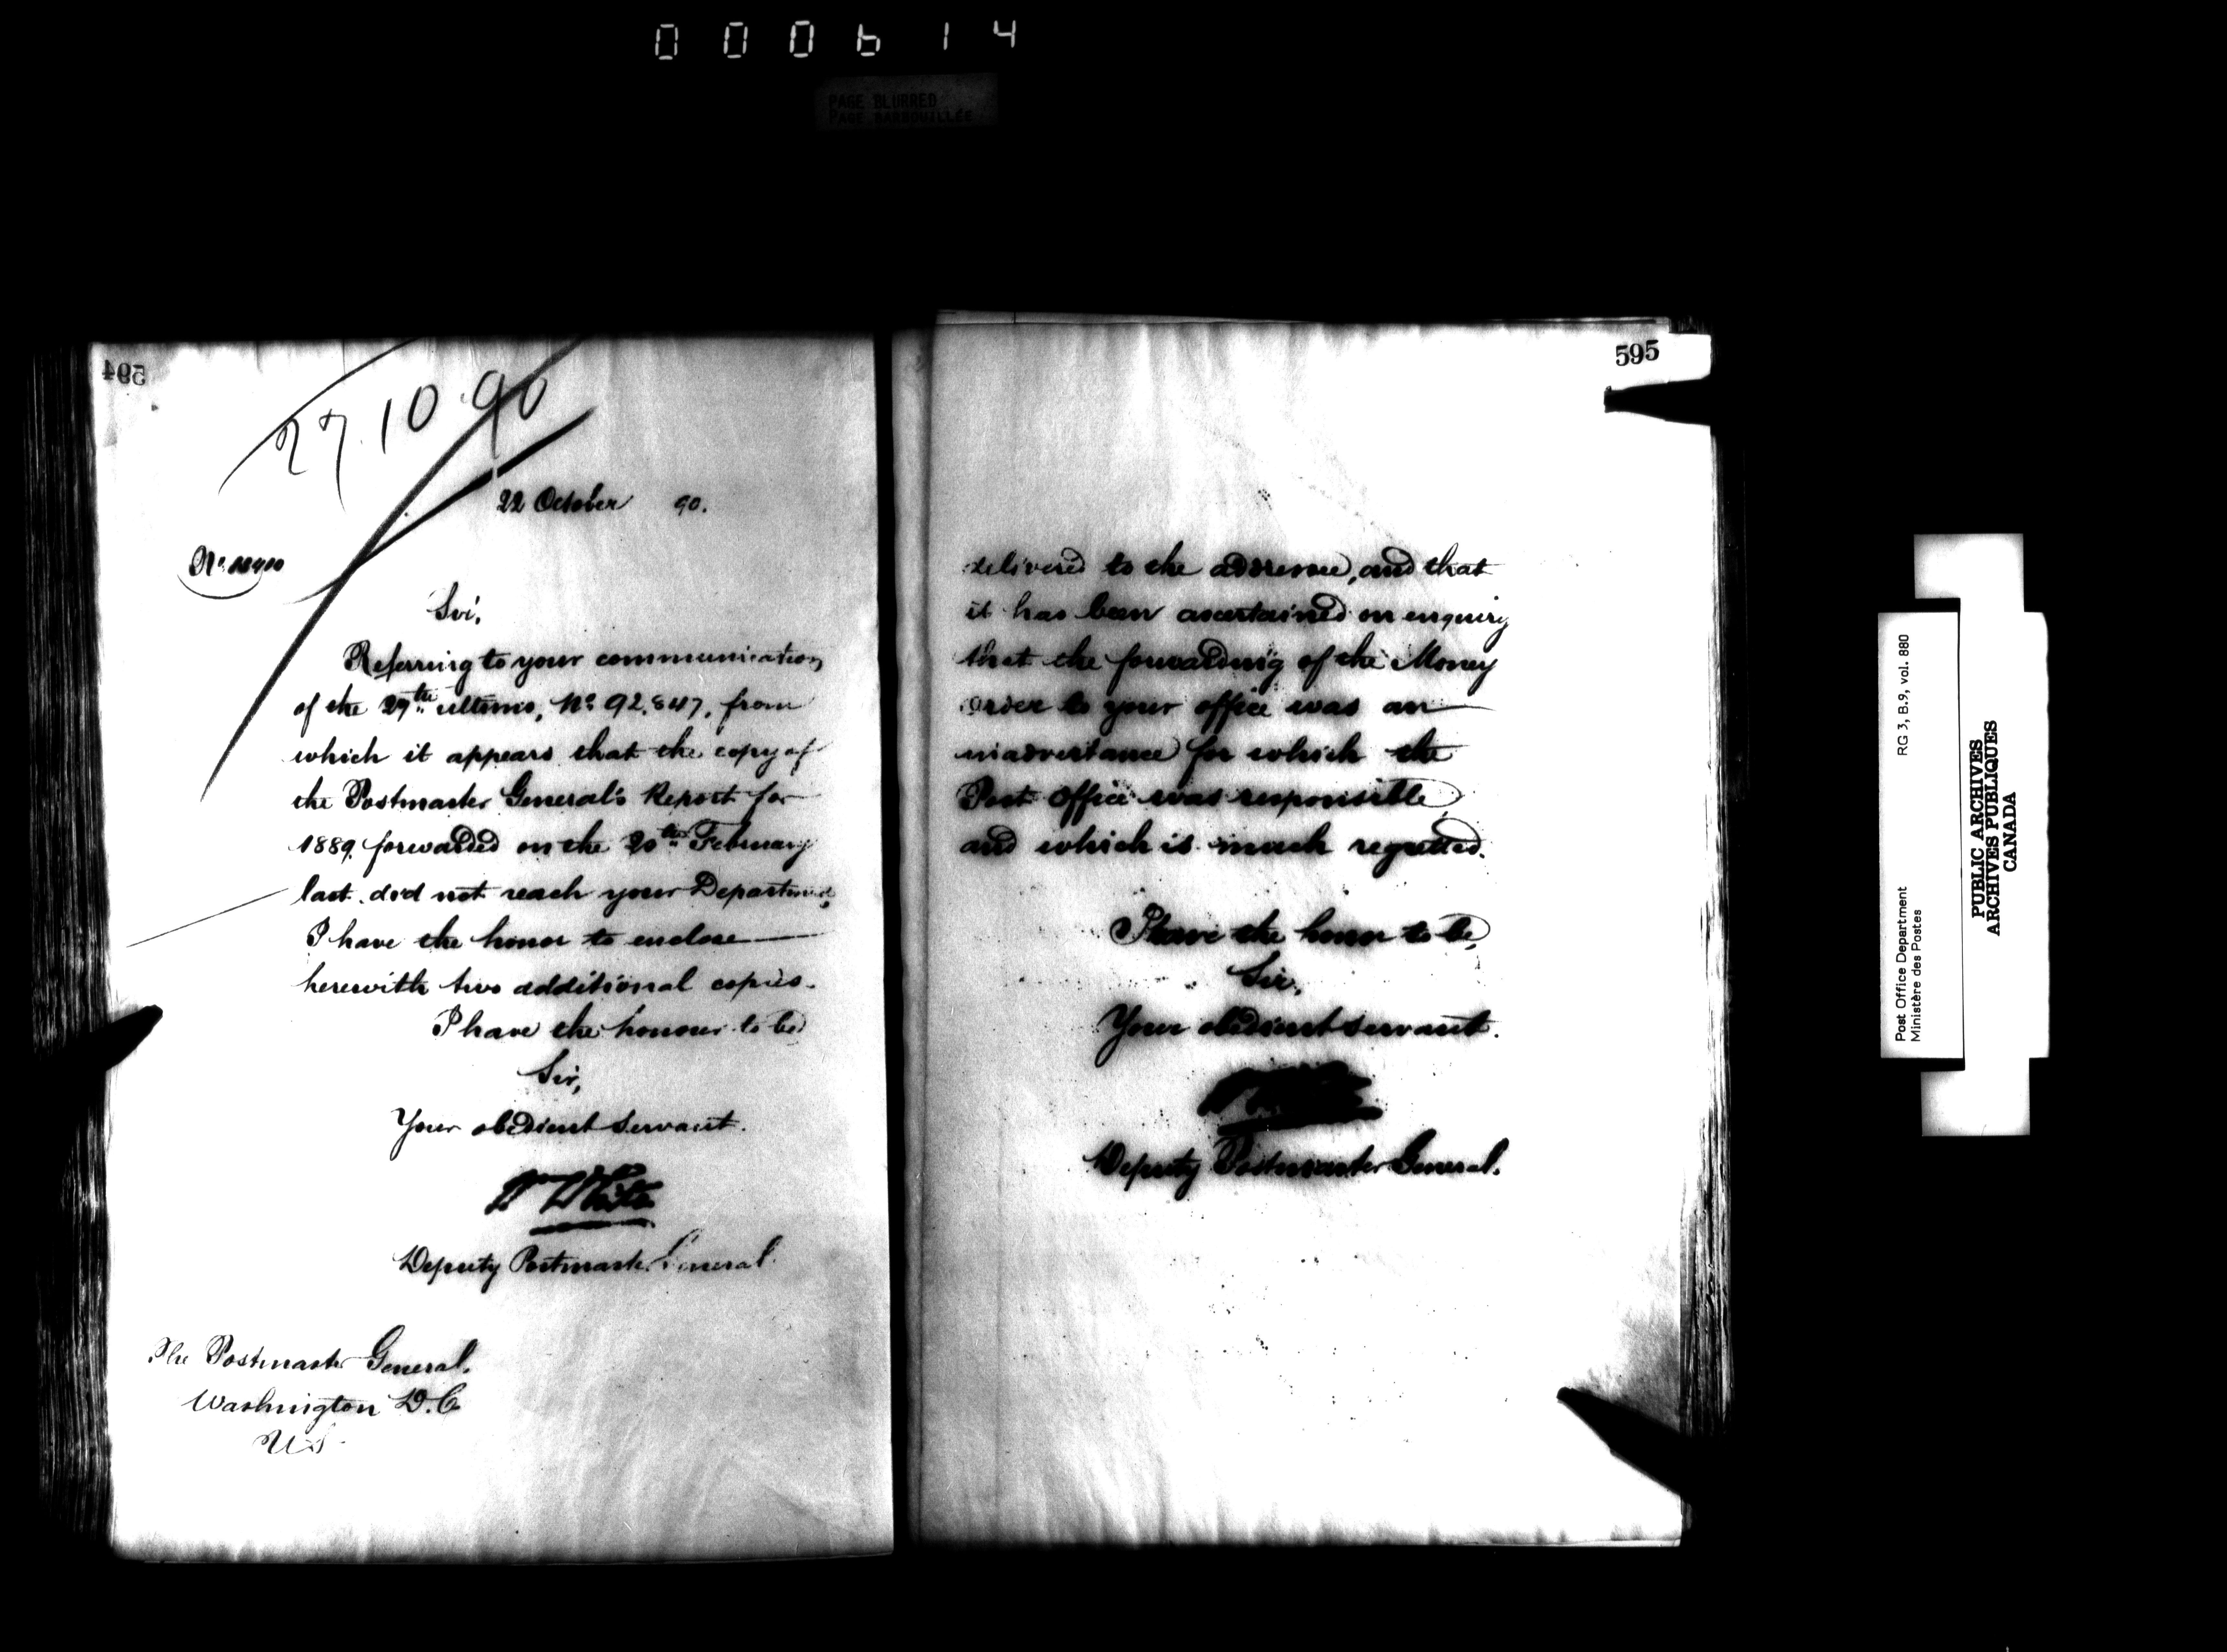 000614
PAGE BLURRED
PAGE BARBOUILLÉE
594
27.10.90
22 October 90.
No.
Sir,
Referring to your communication
of the 29th ultimo, No. 92.847, from
which it appears that the copy of
the Postmaster General's Report for
1889 forwarded on the 20th February
last did not reach your Department,
I have the honor to enclose
herewith two additional copies.
I have the honour to be
Sir,
Your obedient servant.
Wm White
Deputy Postmaster General
The Postmaster General.
Washington D.C
US
595
delivered to the addressee, and that
it has been ascertained on enquiry
that the forwarding of the Money
order to your office was an
inadvertance for which the
Post Office was responsible
and which is much regretted.
I have the honor to be,
Sir,
Your obedient servant.
Deputy Postmaster General.
Post Office Department
Ministère des Postes
RG 3, B.9, vol. 880
PUBLIC ARCHIVES
ARCHIVES PUBLIQUES
CANADA